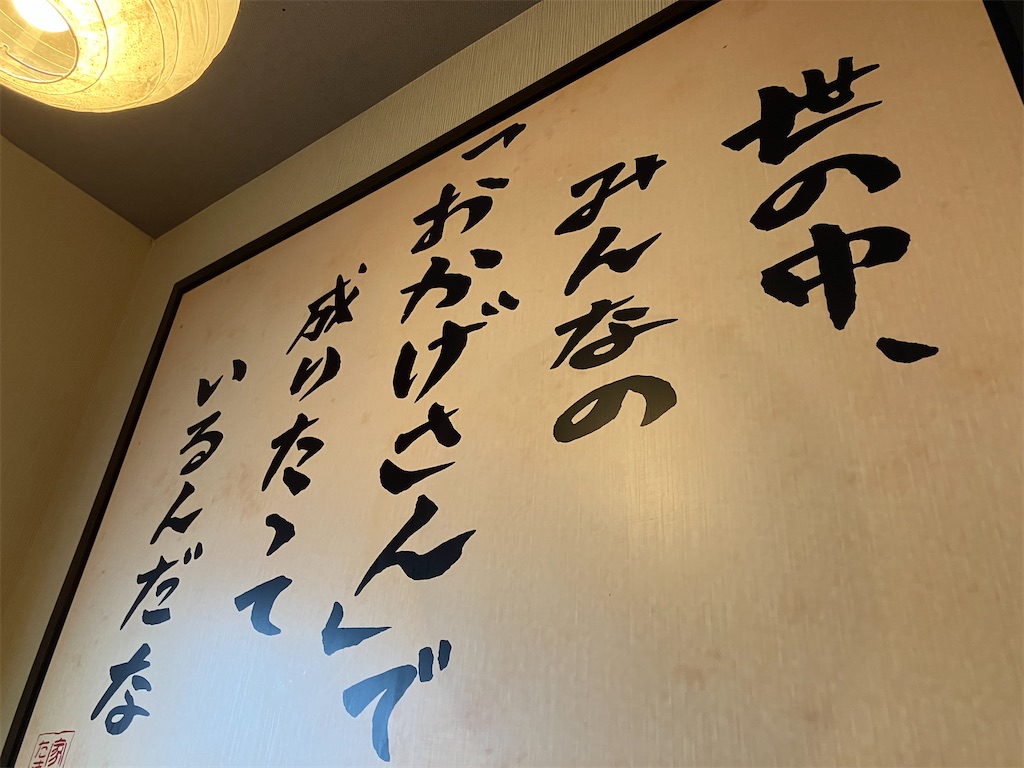 世の中、
みんなの
「おかげさん」で
成りたって
いるんだな